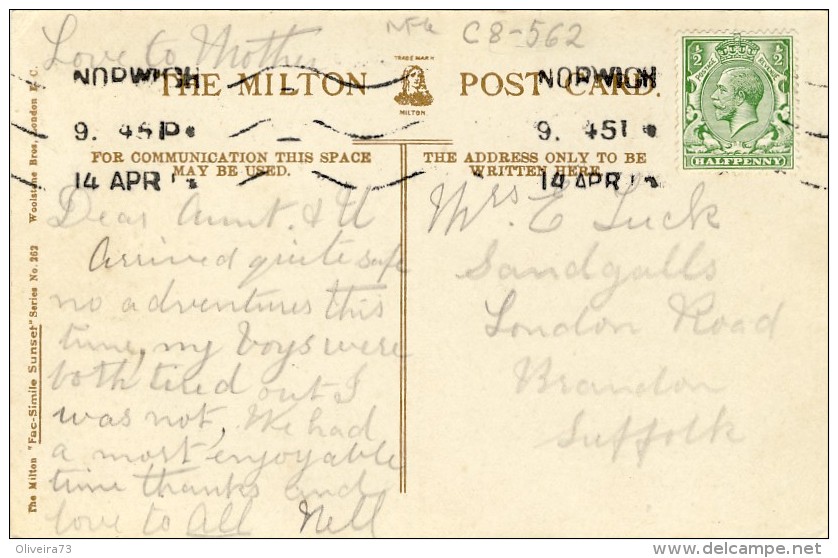 Love to Mother
C8-562
NORWICH
9. 45 P
14 APR
NORWICH
9. 45
14 APR
THE MILTON POST CARD.
TRADE MARK
MILTON.
½ ½
POSTAGE REVENUE
HALFPENNY
FOR COMMUNICATION THIS SPACE
MAY BE USED.
THE ADDRESS ONLY TO BE
WRITTEN HERE
Dear Aunt & U
Arrived quite safe
no adventures this
time, my boys were
both tired out I
was not, We had
a most enjoyable
time thanks and
love to All Nell
Mrs E Luck
Sandgalls
London Road
Brandon
Suffolk
The Milton "Fac-Simile Sunset" Series No. 262 Woolstone Bros., London E. C.
Oliveira73
www.delcampe.net